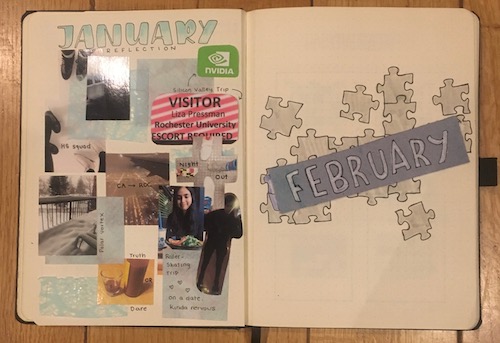 JANUARY
REFLECTION
NVIDIA
Silicon Valley Trip
VISITOR
Liza Pressman
Rochester University
ESCORT REQUIRED
HS squad
Night
Out
CA → ROC
Polar vortex
Truth
OR
Dare
Roller
Skating
trip
on a date
kinda nervous
FEBRUARY